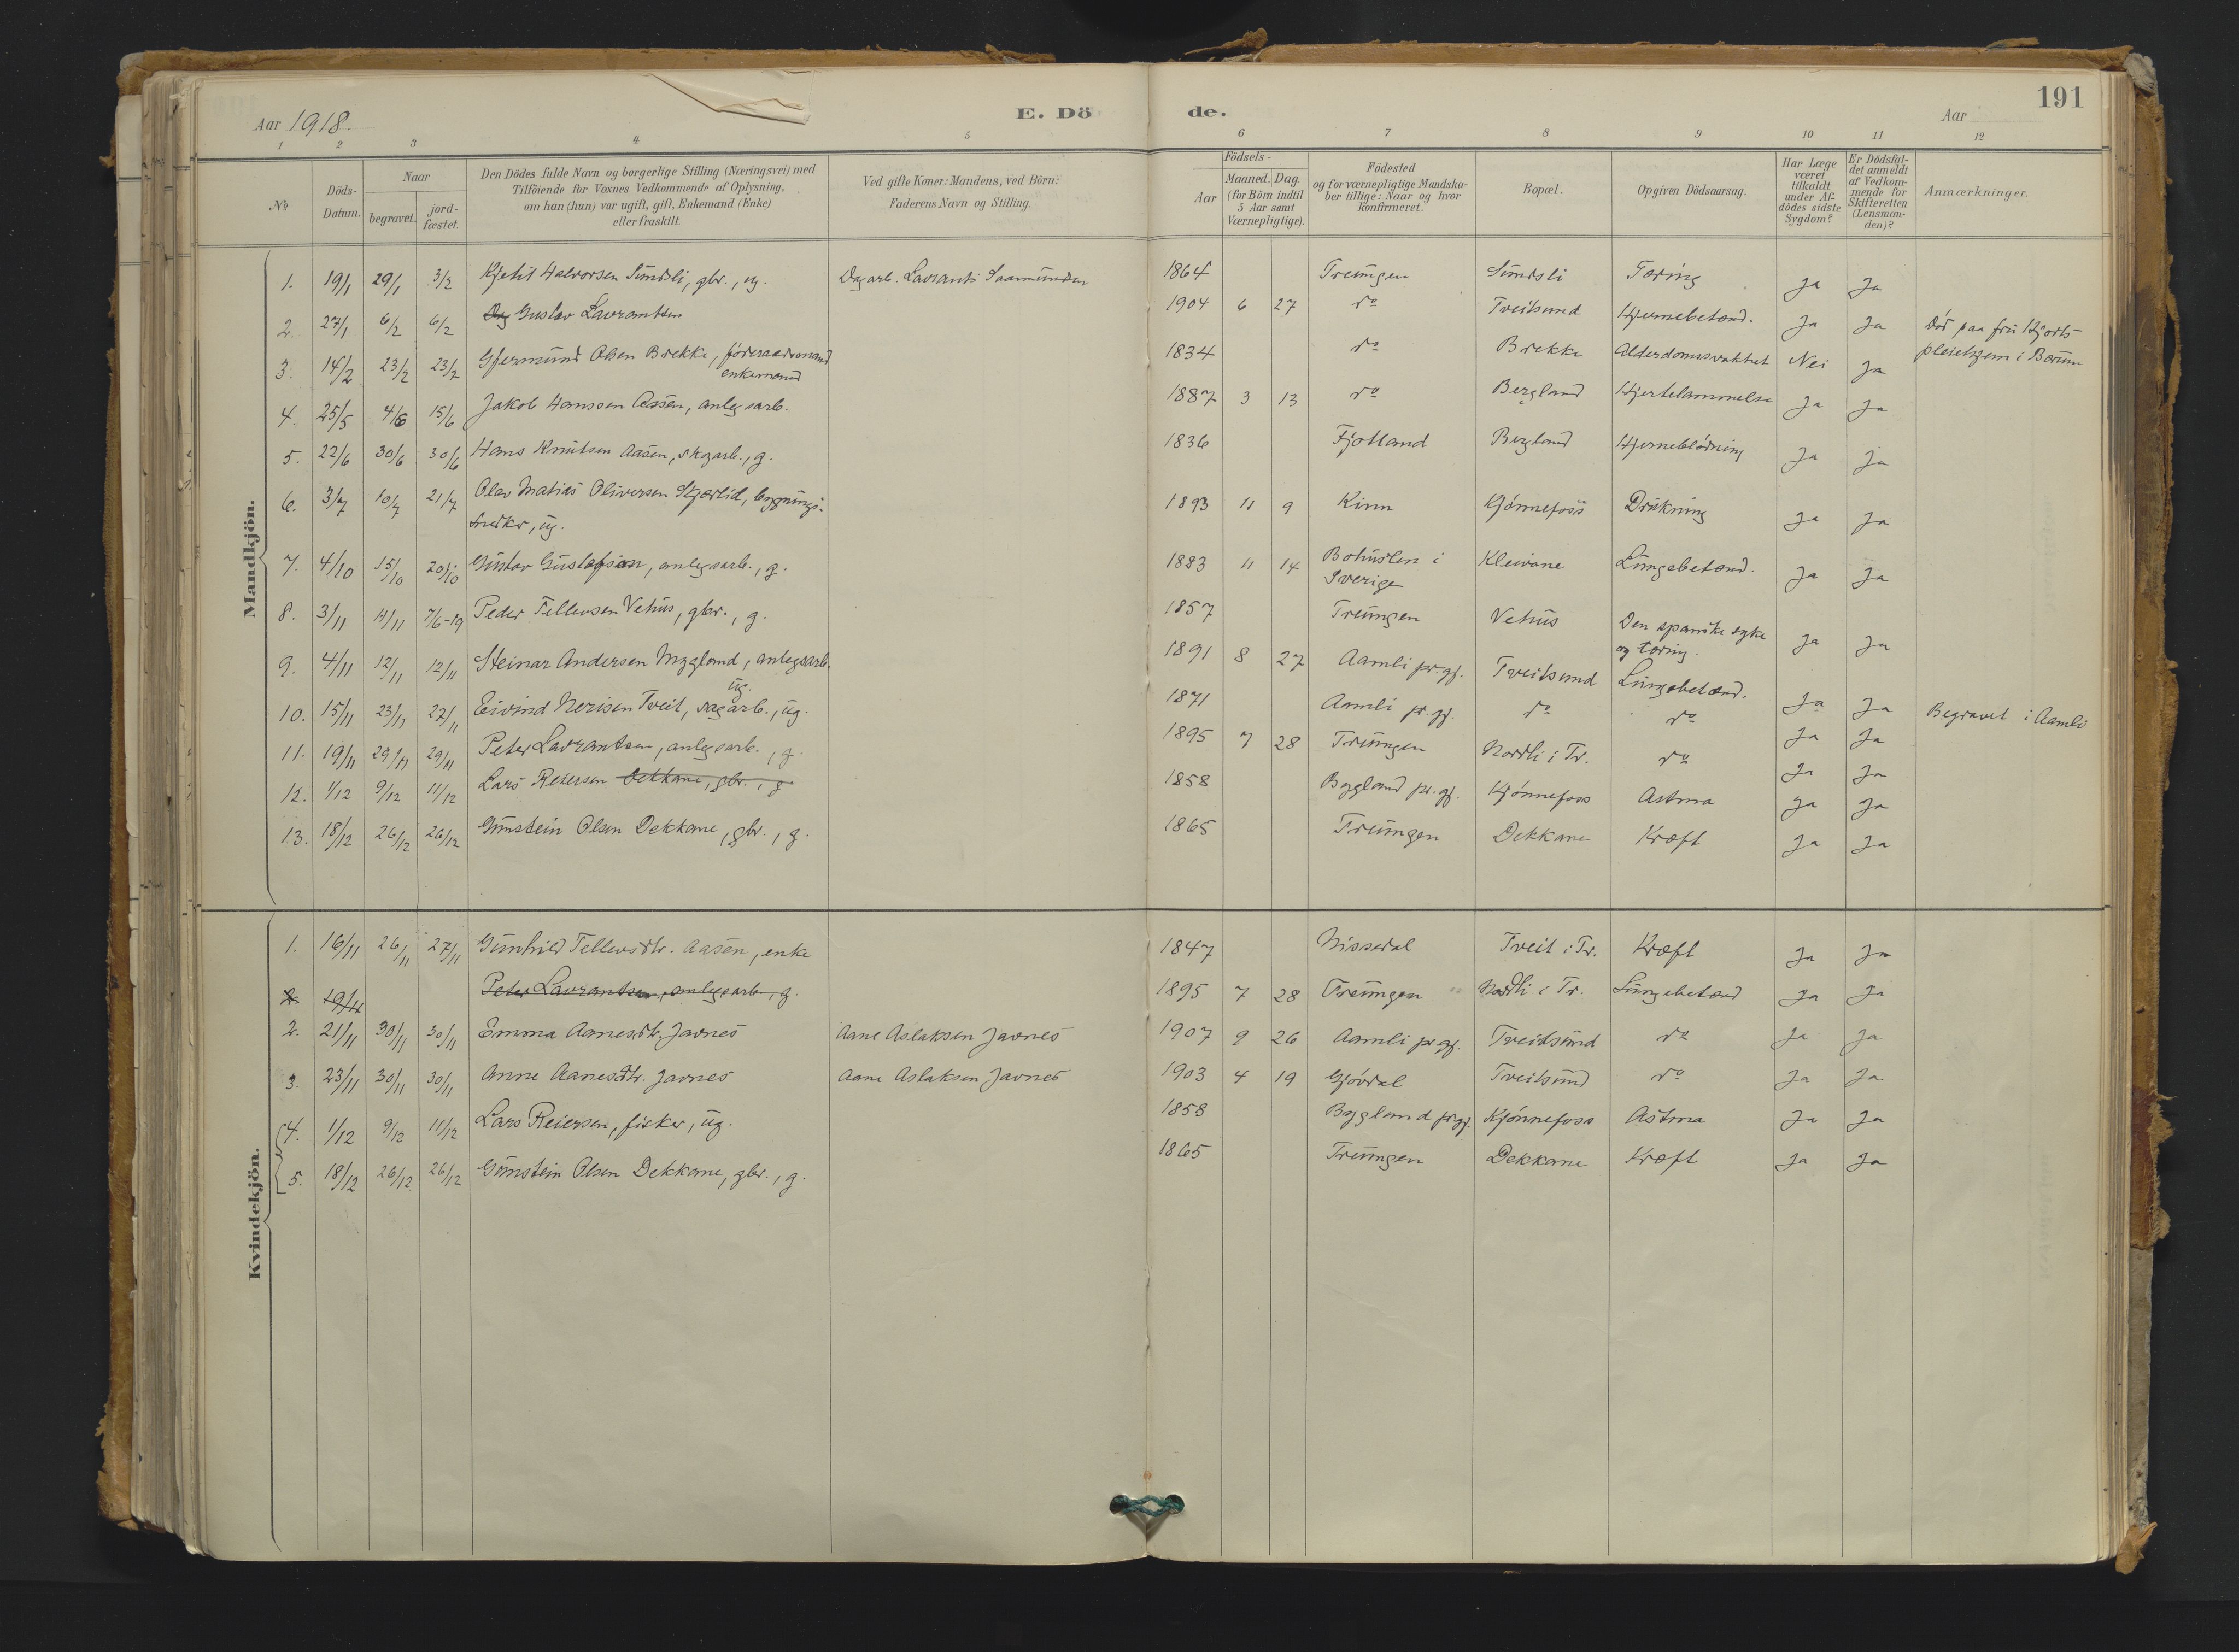 191
Aar 1918.
E. Dö de.
Aar
1 2 3 4 5 6 7 8 9 10 11 12
No
Döds-Datum.
Naar
begravet.
jord-fæstet.
Den Dödes fulde Navn og borgerlige Stilling (Næringsvei) med
Tilföiende for Voxnes Vedkommende af Oplysning,
om han (hun) var ugift, gift, Enkemand (Enke)
eller fraskilt.
Ved gifte Koner: Mandens, ved Börn:
Faderens Navn og Stilling.
Födsels-
Aar
Maaned. Dag.
(for Börn indtil
5 Aar samt
Værnepligtige).
Födested
og for værnepligtige Mandska-
ber tillige: Naar og hvor
konfirmeret.
Bopæl.
Opgiven Dödsaarsag.
Har Læge
været
tilkaldt
under Af-
dödes sidste
Sygdom?
Er Dödsfal-
det anmeldt
af Vedkom-
mende for
Skifteretten
(Lensman-
den)?
Anmærkninger.
Mandkjön.
1. 19/1 29/1 3/2 Kjetil Halvorsen Sundsli, gbr., ug. 1864 Treungen Sundsli Tæring Ja Ja
2. 27/1 6/2 6/2 Gustav Lavrantsen Dagarb. Lavrants Saamundsen 1904 6 27 do Tveitsund Hjernebetænd. Ja Ja Död paa fru Hjorts
pleiehjem i Bærum
3. 14/2 23/2 23/2 Gjermund Olsen Brekke, föderaadsmand 1834 do Brekke Alderdomssvakhet Nei Ja
enkemand
4. 25/5 4/6 15/6 Jakob Hanssen Aasen, anlegsarb. 1887 3 13 do Bergland Hjertelammelse Ja Ja
5. 22/6 30/6 30/6 Hans Knutsen Aasen, skogarb., g. 1836 Fjotland Bergland Hjerneblödning Ja Ja
6. 3/7 10/7 21/7 Olav Matias Oliversen Skjærlid, bygnings- 1893 11 9 Kinn Kjönnefoss Drukning Ja Ja
snedker, ug.
7. 4/10 15/10 20/10 Gustav Gustafsson, anlegsarb., g. 1883 11 14 Bohuslen i Kleivane Lungebetænd. Ja Ja
Sverige
8. 3/11 11/11 7/6-19 Peder Tellevsen Vehus, gbr., g. 1857 Treungen Vehus Den spanske syke Ja Ja
og tæring.
9. 4/11 12/11 12/11 Steinar Andersen Mygland, anlegsarb. 1891 8 27 Aamli pr.gj. Tveitsund Lungebetænd. Ja Ja
ug.
10. 15/11 23/11 27/11 Eivind Nerisen Tveit, sagarb., ug. 1871 Aamli pr.gj. do do Ja Ja Begravet i Aamli
11. 19/11 29/11 29/11 Peter Lavrantsen, anlegsarb., g. 1895 7 28 Treungen Nordli i Tr. do Ja Ja
12. 1/12 9/12 11/12 Lars Reiersen Dekkane, gbr., g 1858 Bygland pr.gj. Kjönnefoss Astma Ja Ja
13. 18/12 26/12 26/12 Gunstein Olsen Dekkane, gbr., g. 1865 Treungen Dekkane Kræft Ja Ja
Kvindekjön.
1. 16/11 26/11 27/11 Gunhild Tellevsdtr. Aasen, enke 1847 Nissedal Tveit i Tr. Kræft Ja Ja
2 19/11 Peter Lavrantsen, anlegsarb., g. 1895 7 28 Treungen Nordli i Tr. Lungebetænd Ja Ja
2. 21/11 30/11 30/11 Emma Aanesdtr. Javnes Aane Aslaksen Javnes 1907 9 26 Aamli pr.gj. Tveitsund do Ja Ja
3. 23/11 30/11 30/11 Anne Aanesdtr. Javnes Aane Aslaksen Javnes 1903 4 19 Gjövdal Tveitsund do Ja Ja
4. 1/12 9/12 11/12 Lars Reiersen, fisker, ug. 1858 Bygland pr.gj. Kjönnefoss Astma Ja Ja
5. 18/12 26/12 26/12 Gunstein Olsen Dekkane, gbr., g. 1865 Treungen Dekkane Kræft Ja Ja